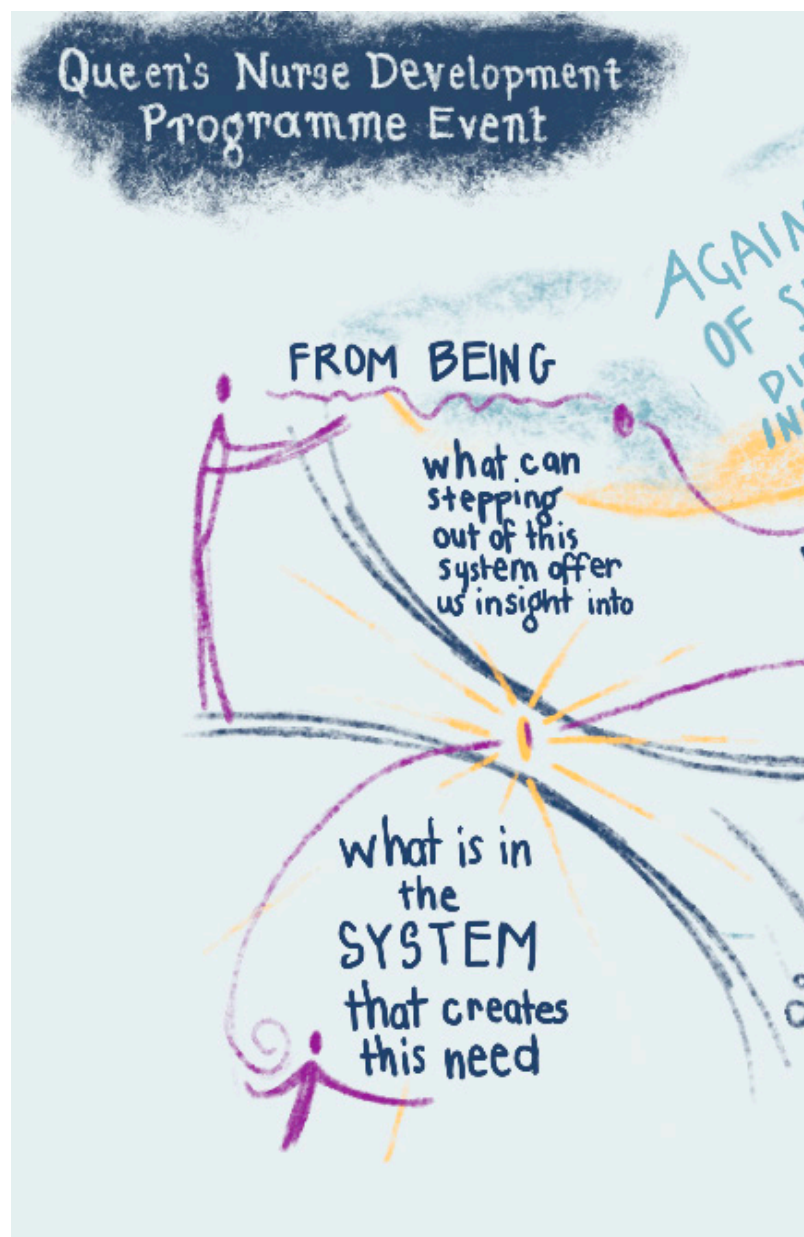 Queen's Nurse Development
Programme Event
FROM BEING
what can
stepping
out of this
system offer
us insight into
OF
what is in
the
SYSTEM
that creates
this need